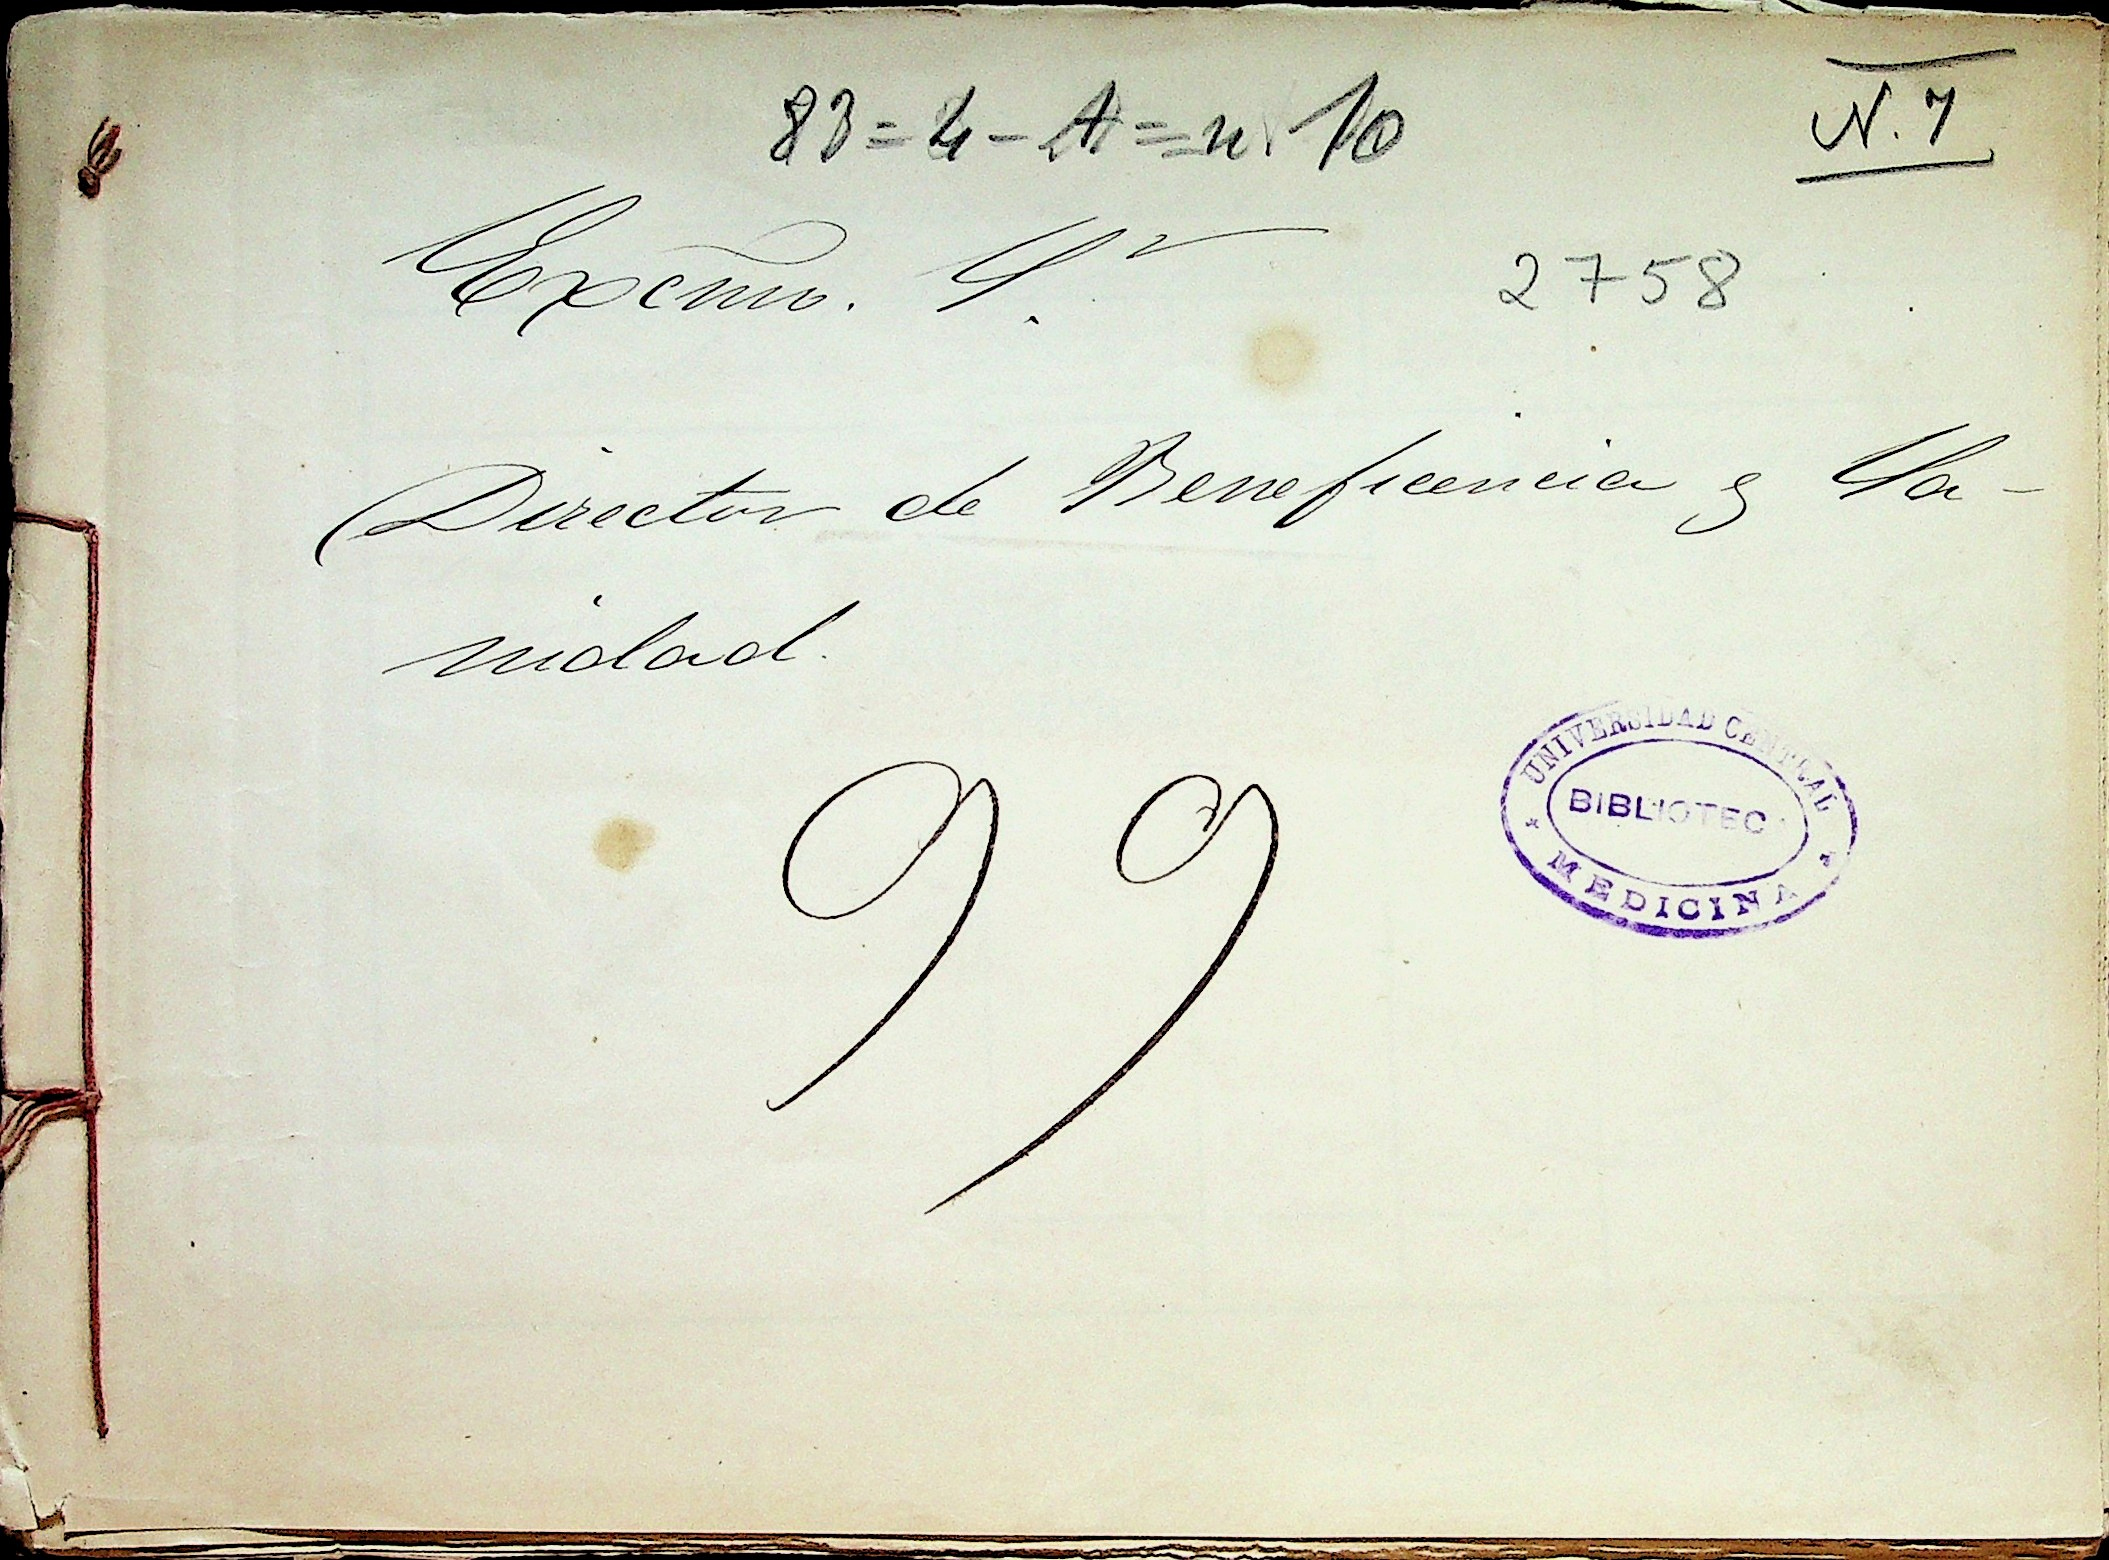 83=4-A=n. 10
N. 7
Excmo. S.r
2758
Director de Beneficencia y Sa-
nidad.
99
UNIVERSIDAD CENTRAL
BIBLIOTECA
MEDICINA